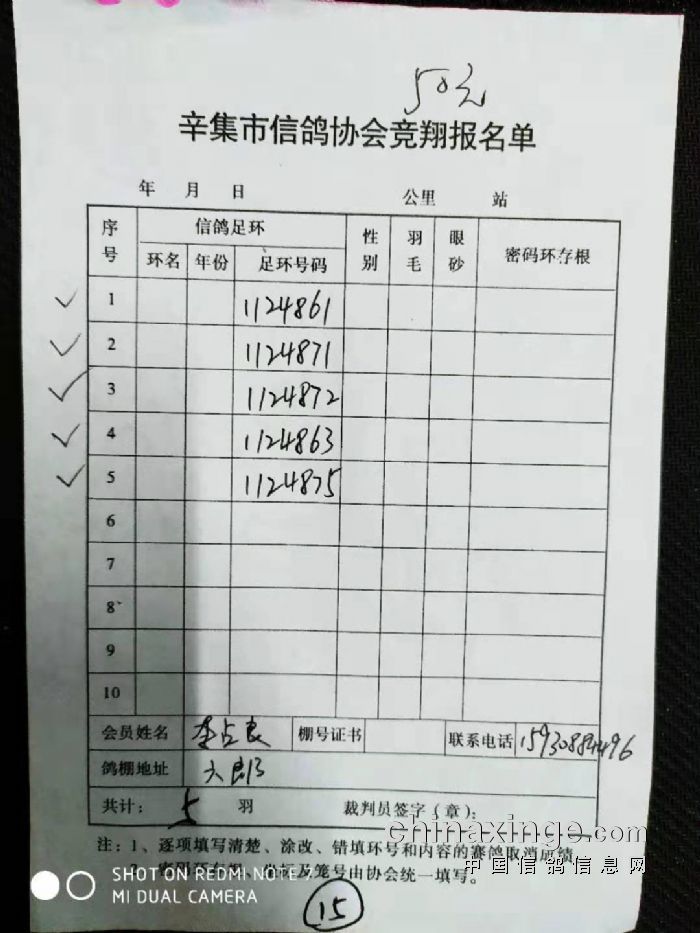 50元
辛集市信鸽协会竞翔报名单
年 月 日 公里 站
序号 信鸽足环 性别 羽毛 眼砂 密码环存根
环名 年份 足环号码
1 1124861
2 1124871
3 1124872
4 1124863
5 1124875
6
7
8
9
10
会员姓名 李占良 棚号证书 联系电话 15930884496
鸽棚地址 六郎
共计： 5 羽 裁判员签字（章）：
注：1、逐项填写清楚、涂改、错填环号和内容的赛鸽取消成绩
chinaxinge.com
2、密码环存根、坐标及笼号由协会统一填写。
中国信鸽信息网
SHOT ON REDMI NOTE 7
MI DUAL CAMERA
15